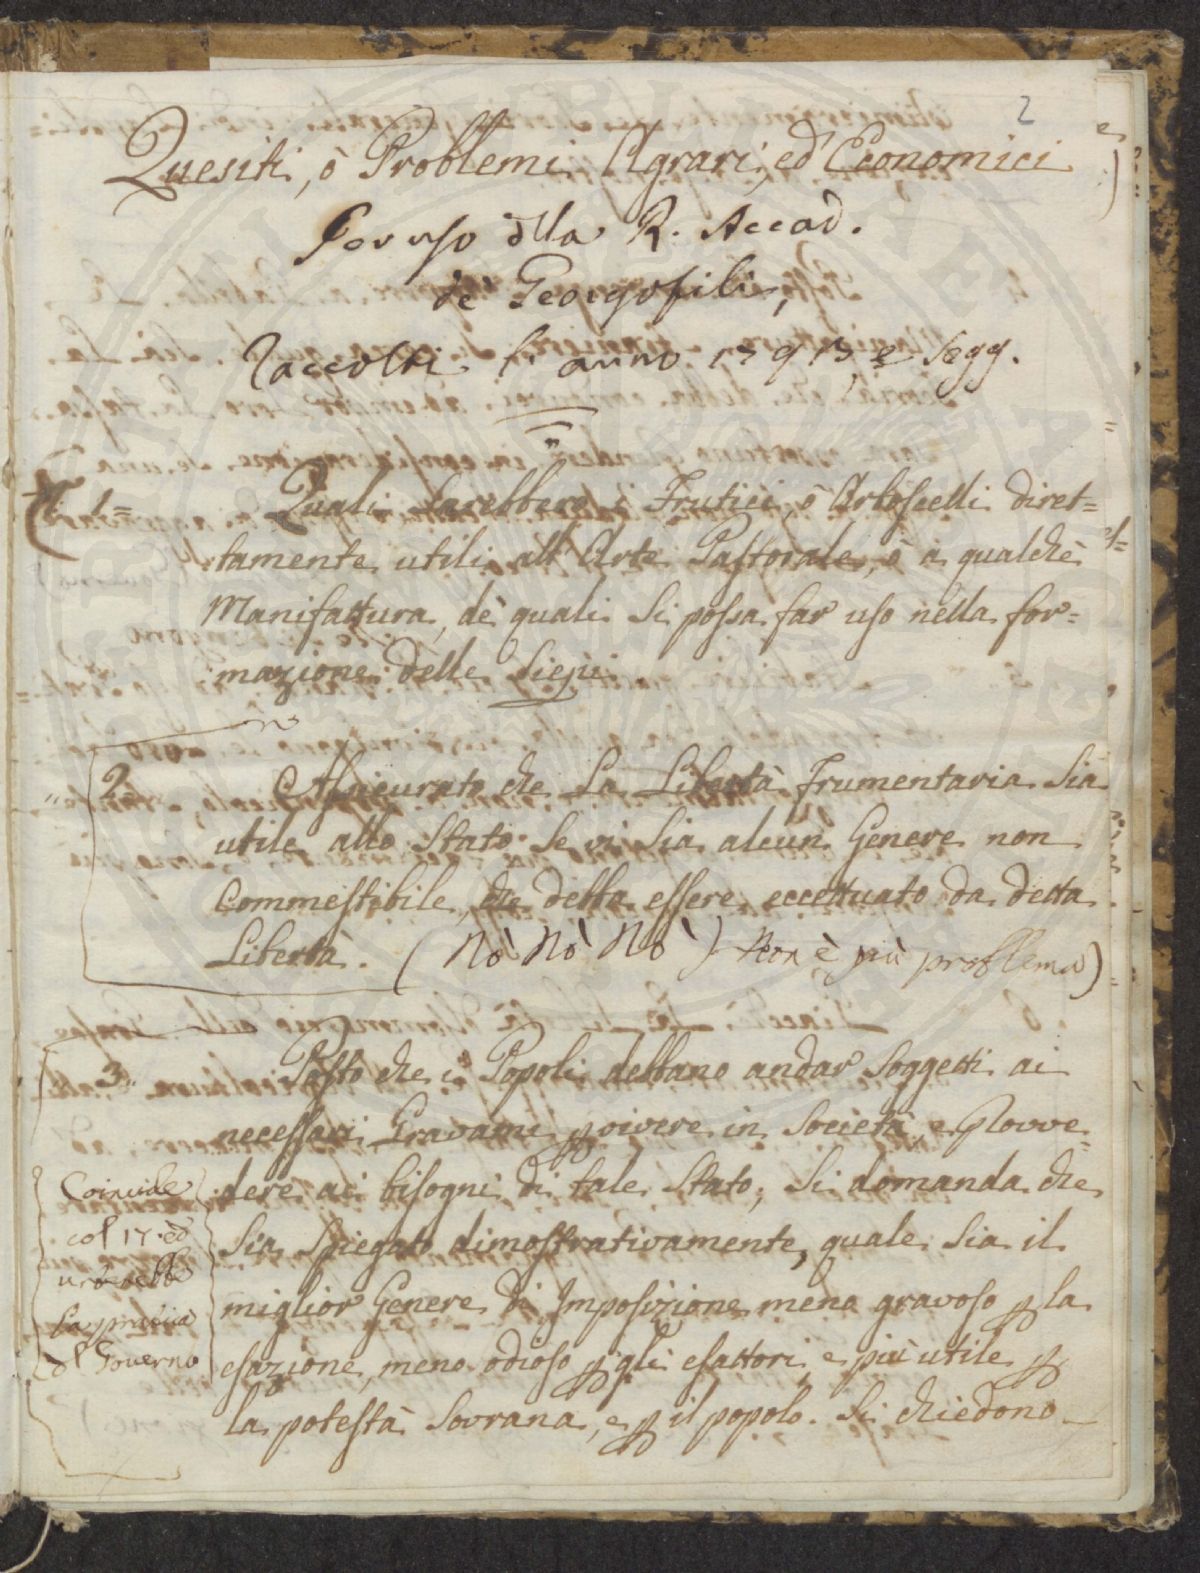 2
Quesiti, ò Problemi Agrari, ed Economici
Per uso dlla R. Accad.
de' Georgofili,
Raccolti l' anno 1791, e segg.
1.= Quali sarebbero i Frutici, ò Arboscelli diret=
tamente utili all' Arte Pastorale, ò a qualche
Manifattura, de' quali si possa far uso nella for=
mazione delle Siepi
2. Assicurato che la Libertà Frumentaria sia
utile allo Stato. Se vi sia alcun Genere non
Commestibile, che debba essere eccettuato da detta
Libertà. (Nò Nò Nò) Non è più problema)
3.. Posto che i Popoli debbano andar soggetti ai
necessari Gravami p vivere in società e Provve=
dere ai bisogni di tale Stato; Si domanda che
sia spiegato dimostrativamente, quale sia il
miglior Genere di Imposizione meno gravoso p la
esazione, meno odioso p gli esattori e più utile p
la potestà Sovrana, e p il popolo. Si chiedono
Coincide
col 17. ed
urterebbe
la pratica
dl Governo